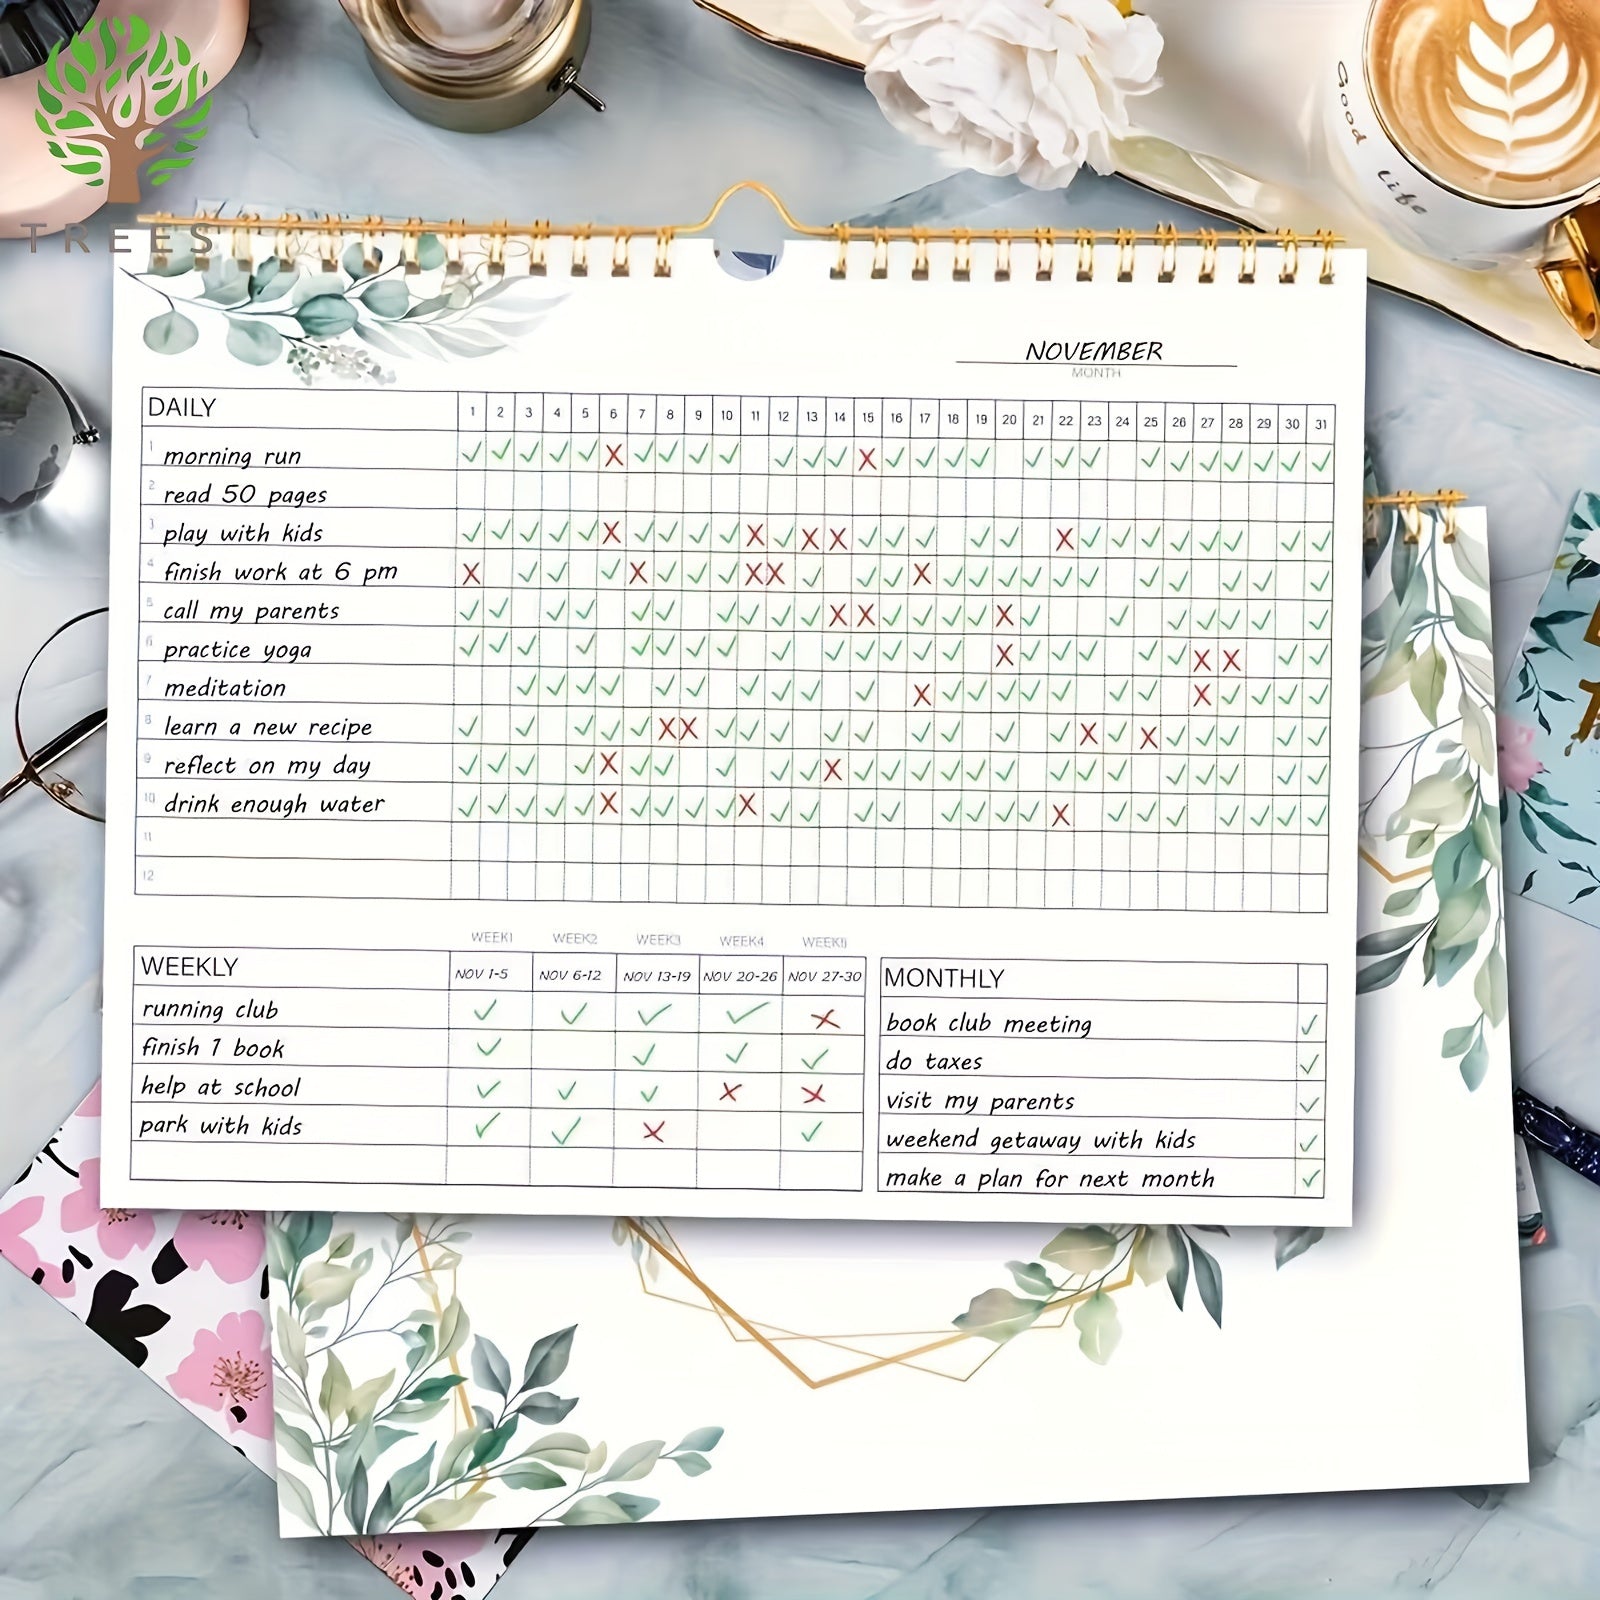 TREES
Good Life
NOVEMBER
MONTH
DAILY 1 2 3 4 5 6 7 8 9 10 11 12 13 14 15 16 17 18 19 20 21 22 23 24 25 26 27 28 29 30 31
1 morning run
2 read 50 pages
3 play with kids
4 finish work at 6 pm
5 call my parents
6 practice yoga
7 meditation
8 learn a new recipe
9 reflect on my day
10 drink enough water
11
12
WEEK1 WEEK2 WEEK3 WEEK4 WEEK5
WEEKLY NOV 1-5 NOV 6-12 NOV 13-19 NOV 20-26 NOV 27-30
running club
finish 1 book
help at school
park with kids
MONTHLY
book club meeting
do taxes
visit my parents
weekend getaway with kids
make a plan for next month